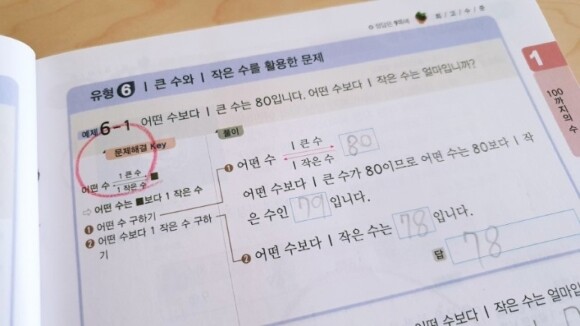 정답은 9쪽에
최|고|수|준
유형 6 1 큰 수와 1 작은 수를 활용한 문제
예제 6-1 어떤 수보다 1 큰 수는 80입니다. 어떤 수보다 1 작은 수는 얼마입니까?
문제해결 Key
어떤 수 1 큰 수 1 작은 수 ■
⇨ 어떤 수는 ■보다 1 작은 수
❶ 어떤 수 구하기
❷ 어떤 수보다 1 작은 수 구하
기
풀이
❶ 어떤 수 1 큰 수 1 작은 수 80
어떤 수보다 1 큰 수가 80이므로 어떤 수는 80보다 1 작
은 수인 79입니다.
❷ 어떤 수보다 1 작은 수는 78입니다.
답 78
1
100까지의 수
어떤 수보다 1 작은 수는 얼마입